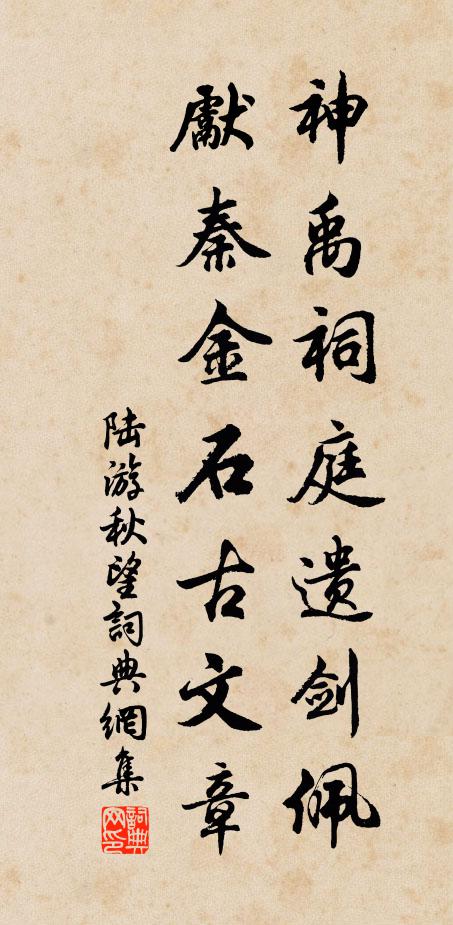 神禹祠庭遗剑佩
獻秦金石古文章
陆游秋望詞典網集
詞典
网印